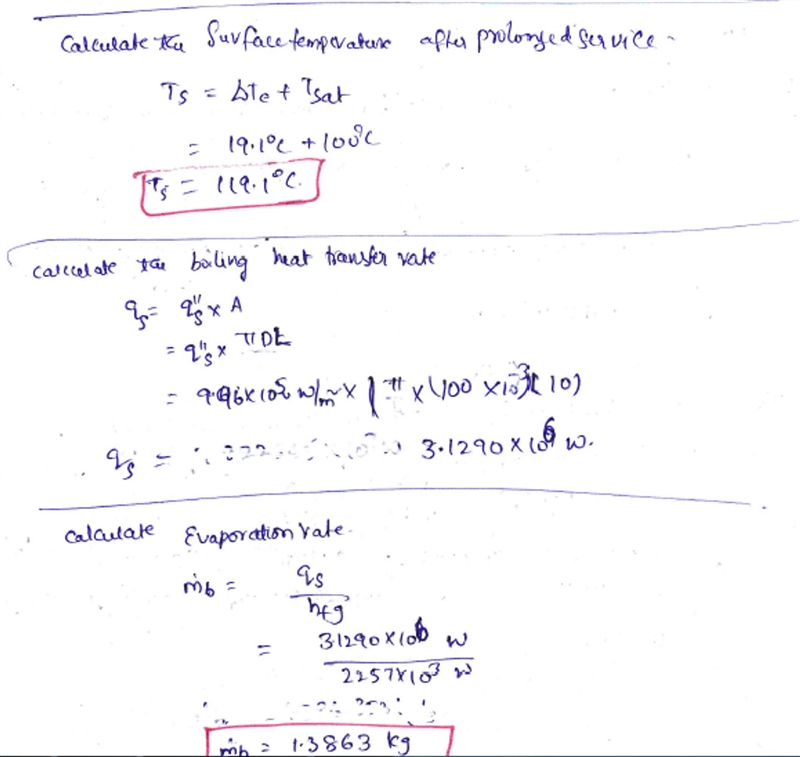 Calculate the Surface temperature after prolonged service.
Ts = ΔTe + Tsat
= 19.1°C + 100°C
Ts = 119.1°C.
Calculate the boiling heat transfer rate
qs = q"s × A
= q"s × πDL
= 9.96×10⁵ W/m² × (π × (100 ×10⁻³)(10)
qs = 3.1290 × 10⁶ W.
Calculate Evaporation rate.
ṁb = qs
hfg
= 3.1290×10⁶ W
2257×10³ W
ṁb = 1.3863 kg